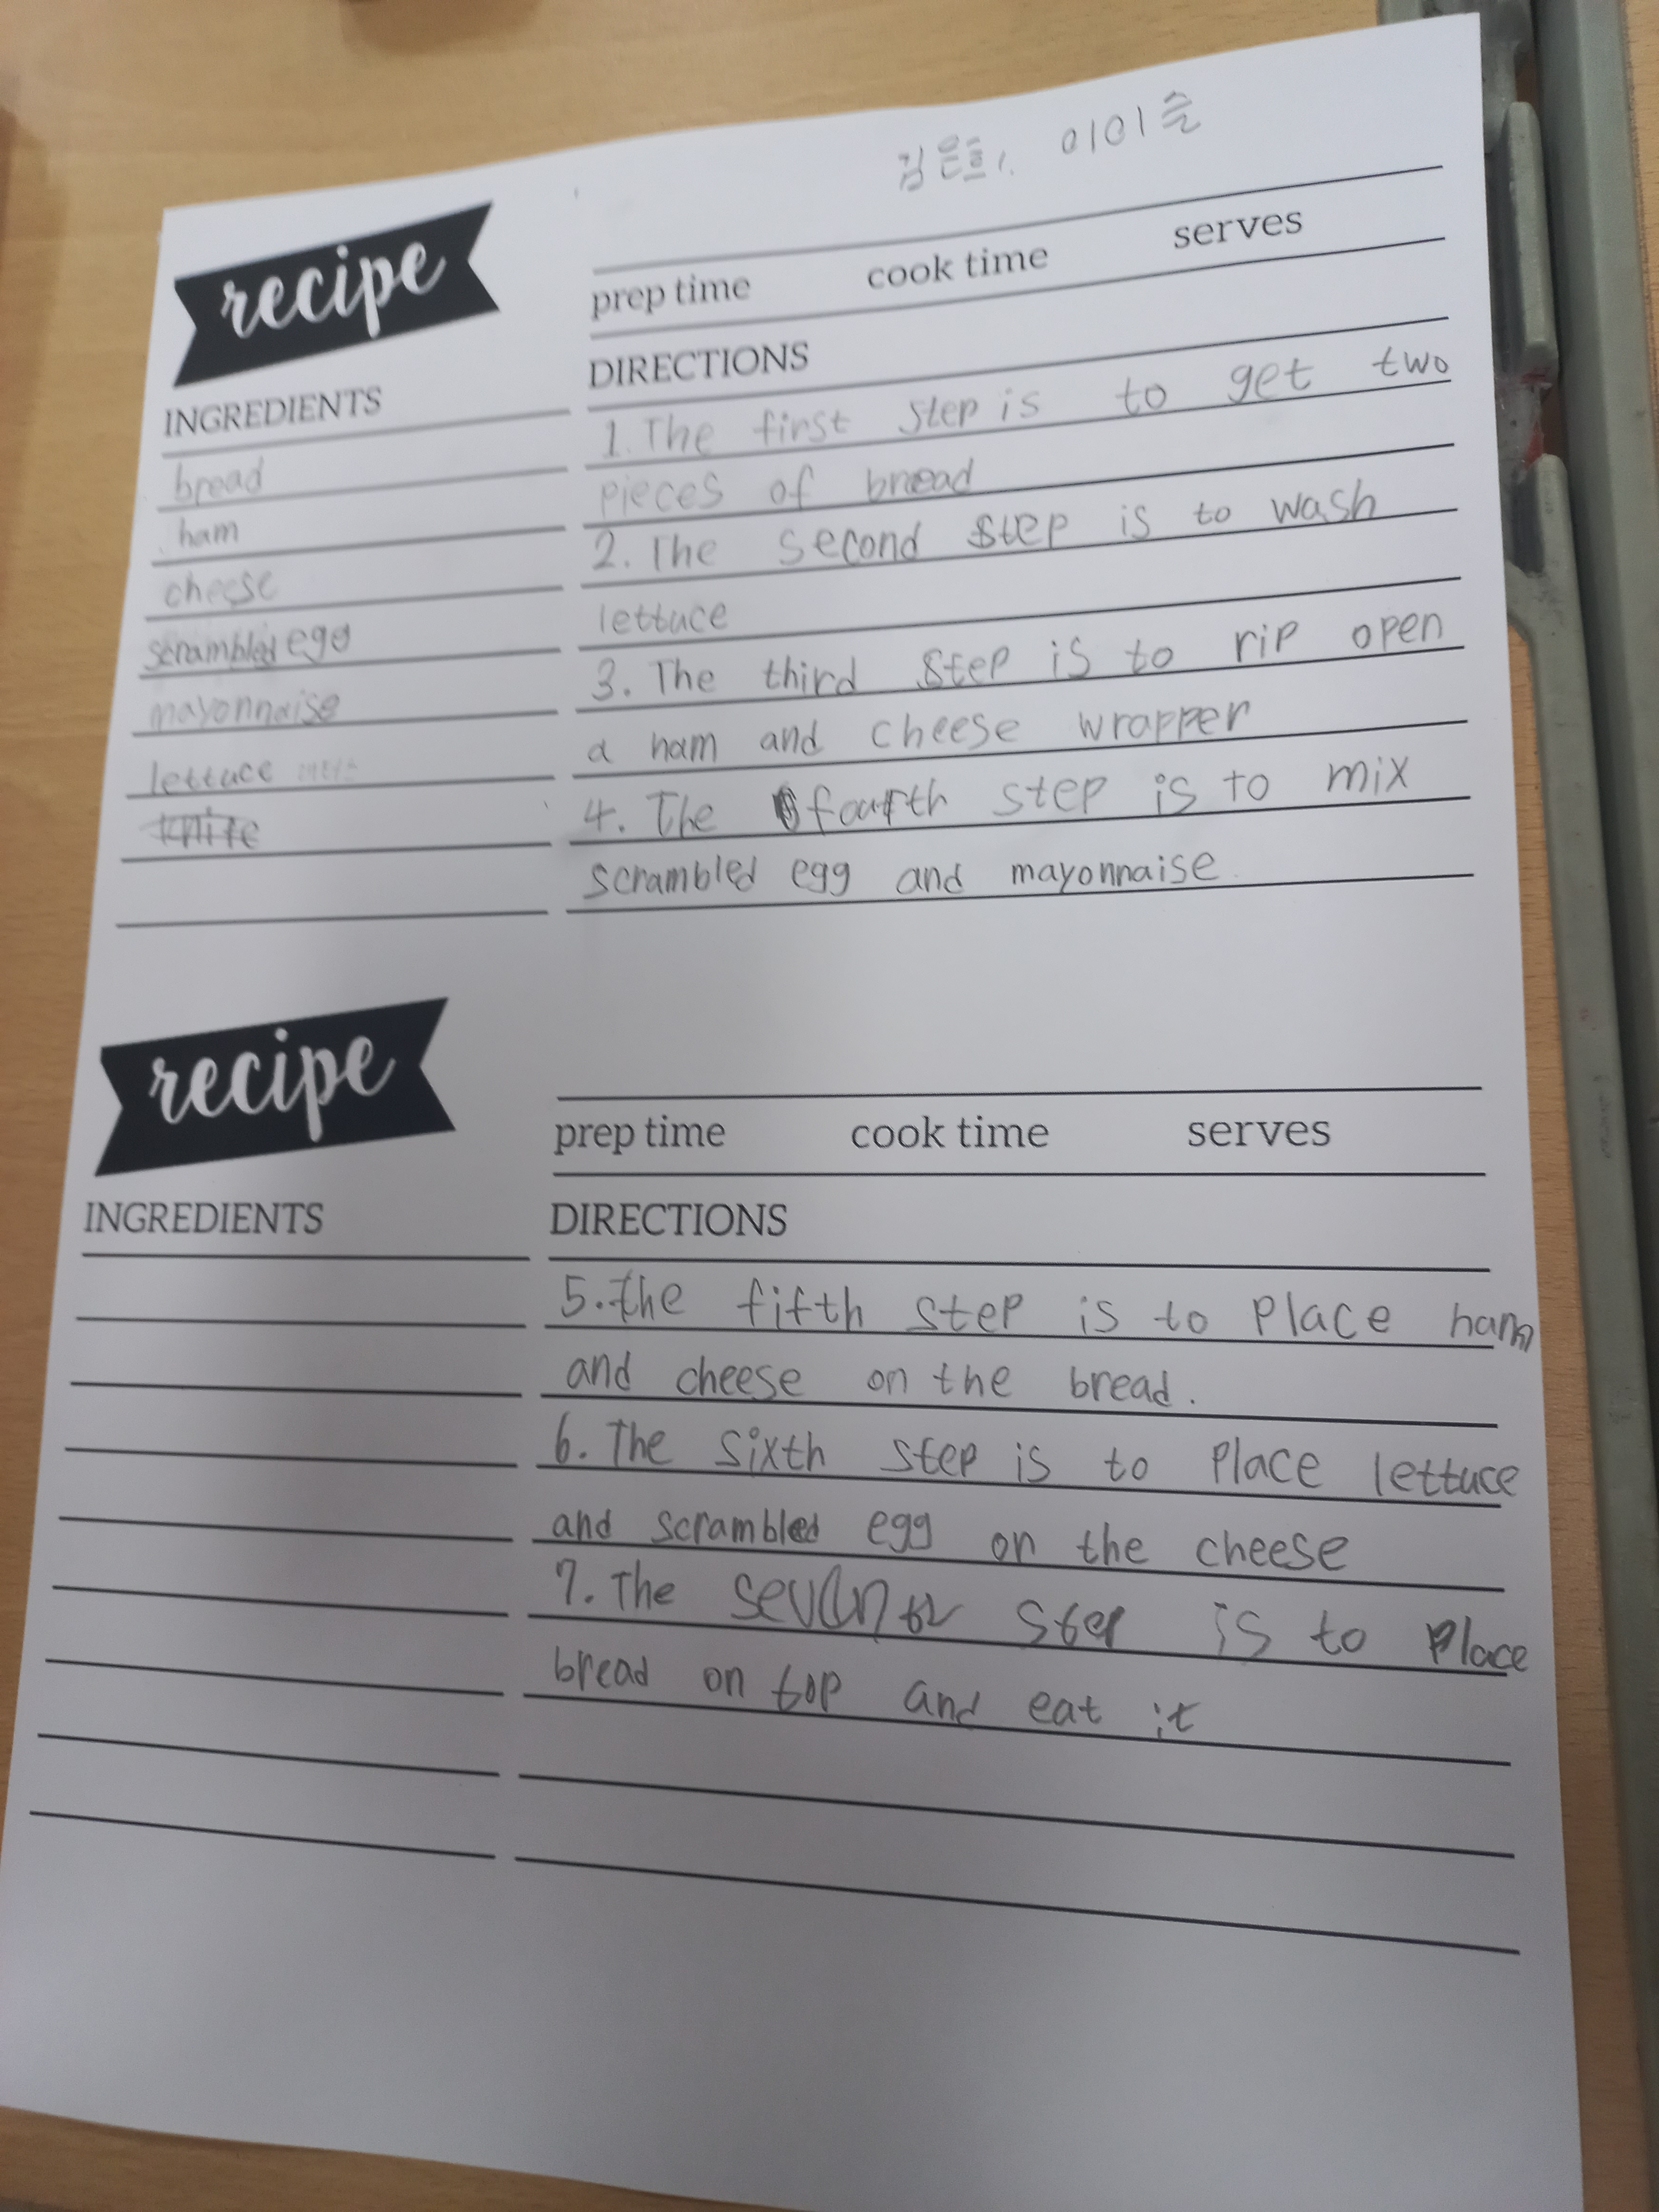 이이슬
recipe
prep time cook time serves
INGREDIENTS
bread
ham
cheese
scrambled egg
mayonnaise
lettuce
knife
DIRECTIONS
1. The first step is to get two
pieces of bread
2. The second step is to wash
lettuce
3. The third step is to rip open
a ham and cheese wrapper
4. The fourth step is to mix
scrambled egg and mayonnaise.
recipe
prep time cook time serves
INGREDIENTS
DIRECTIONS
5. the fifth step is to place ham
and cheese on the bread.
6. The sixth step is to place lettuce
and scrambled egg on the cheese
7. The step is to place
bread on top and eat it